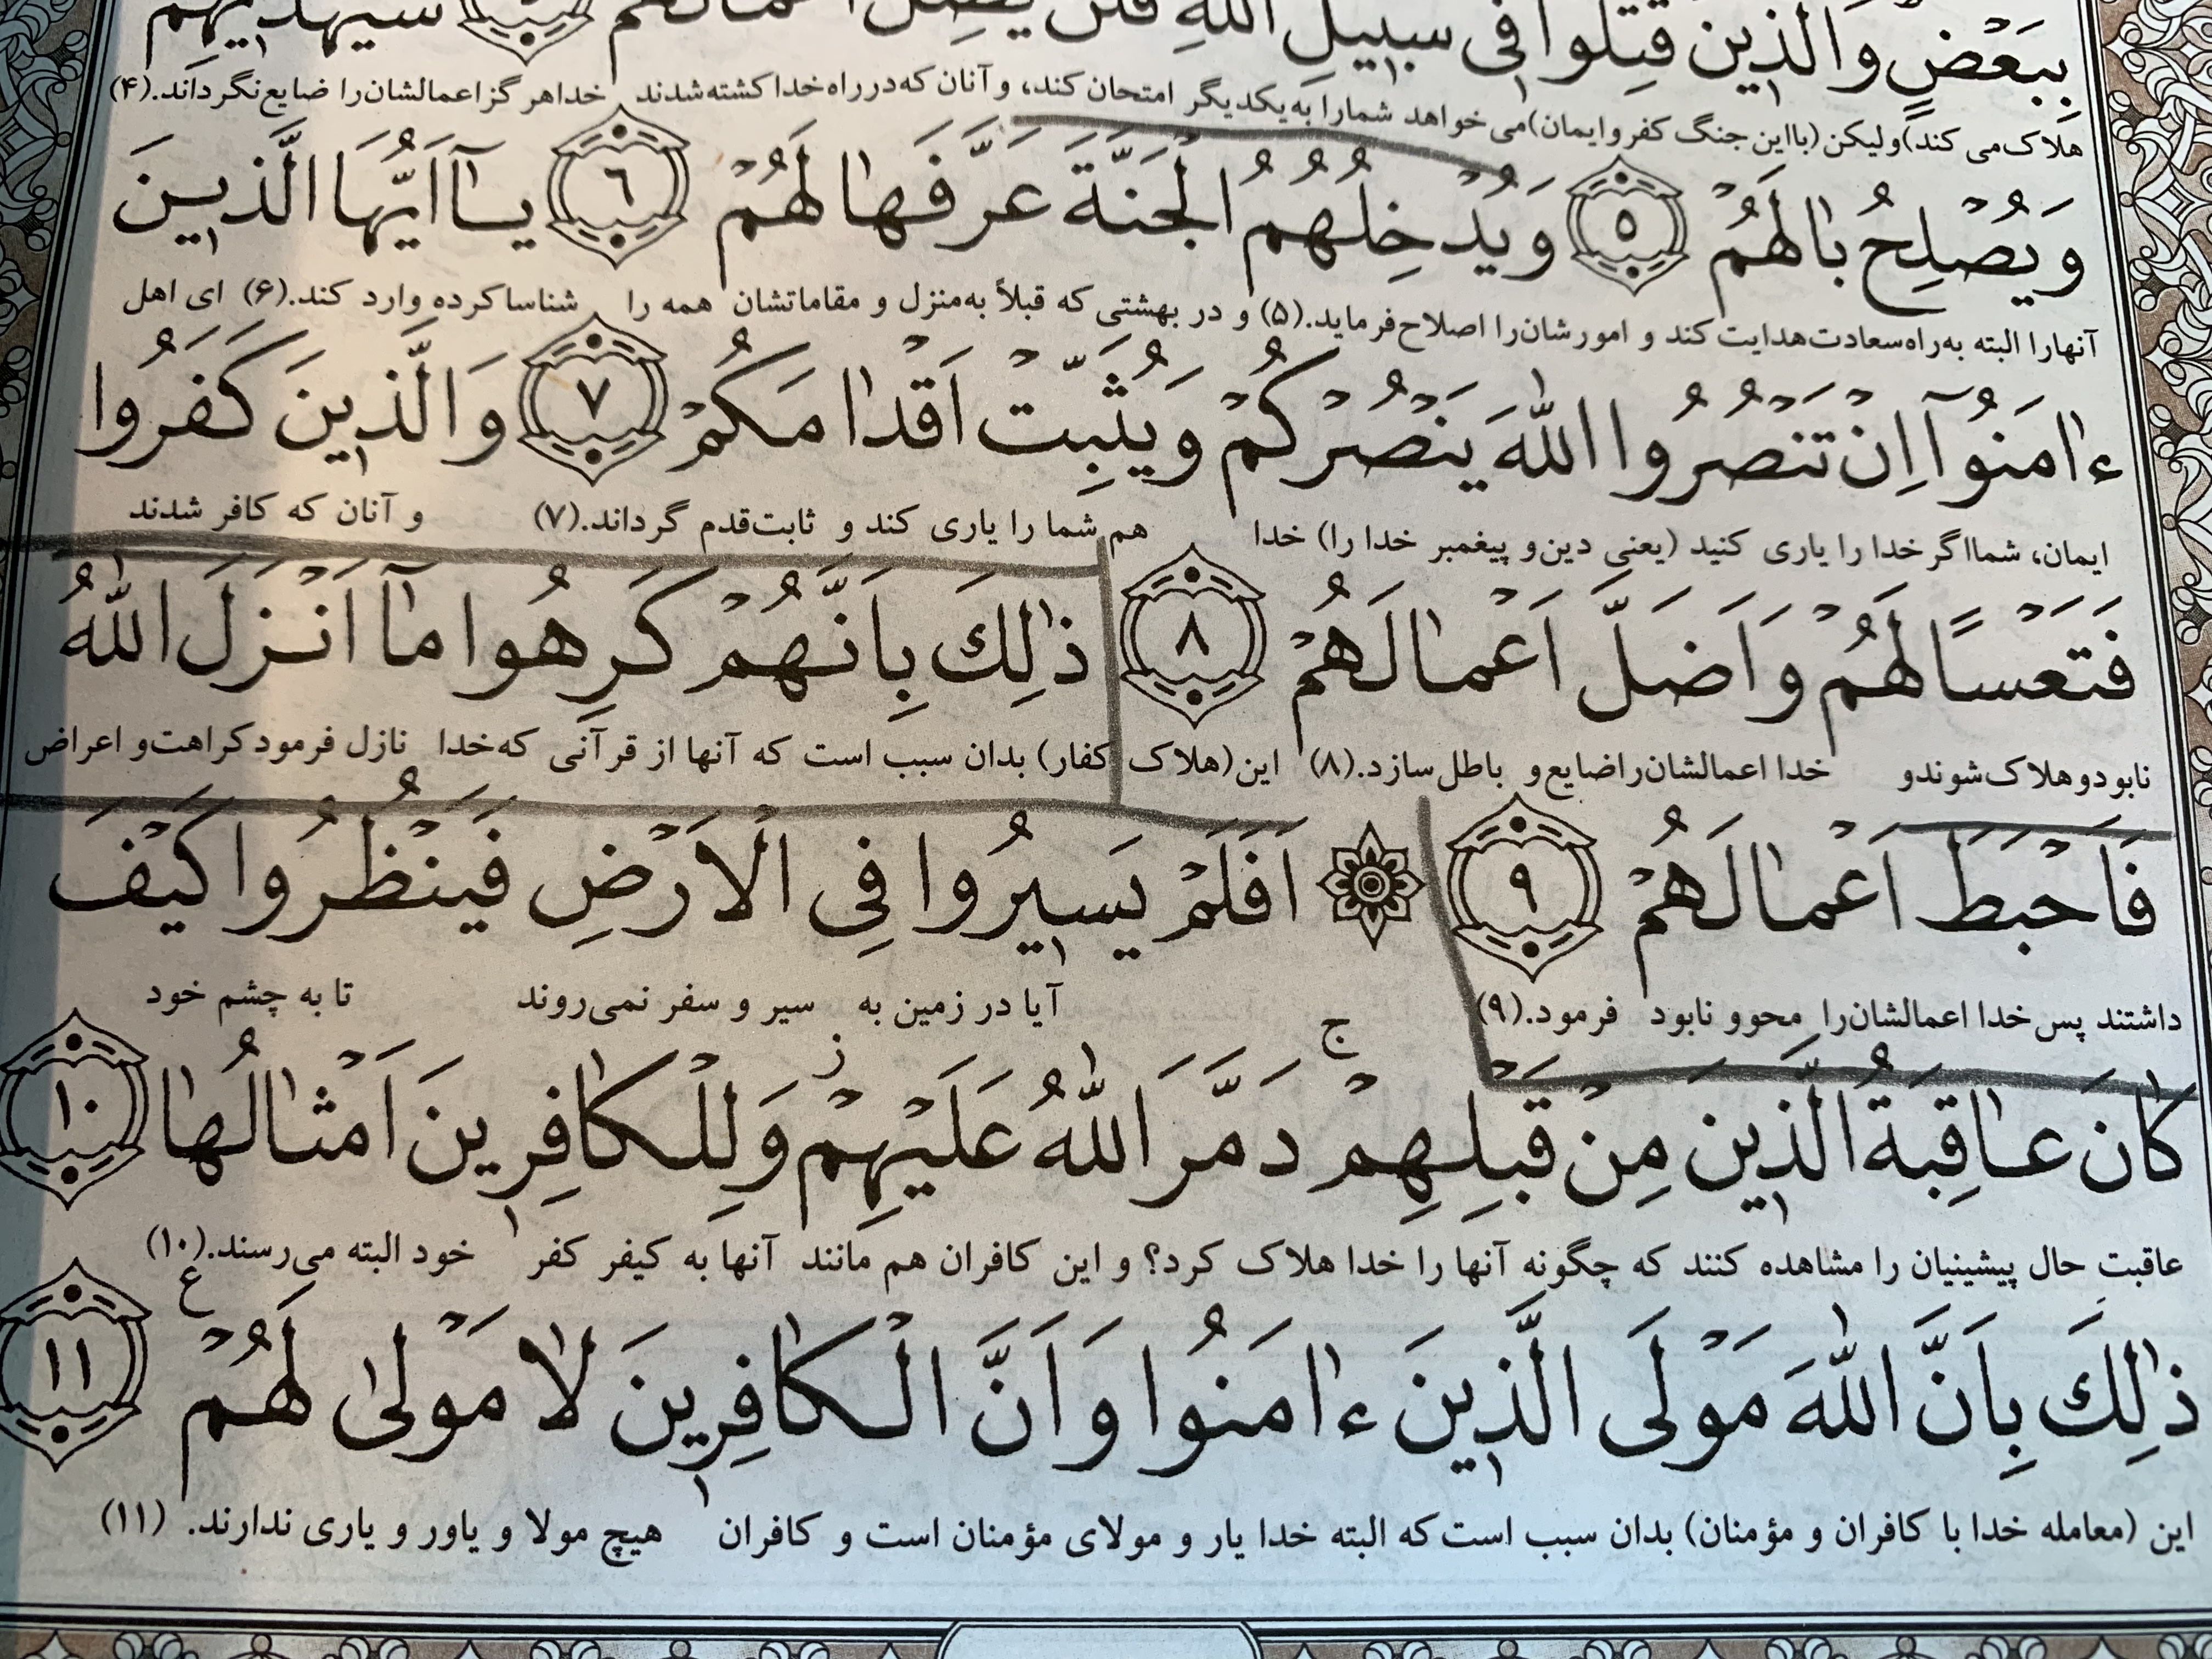 بِبَعْضٍ وَالَّذينَ قُتِلُوا فى سَبيلِ اللّٰهِ فَلَنْ يُضِلَّ اَعْمالَهُمْ ٤ سَيَهْديهِمْ
هلاک می کند) ولیکن (با این جنگ کفر و ایمان) می خواهد شما را به یکدیگر امتحان کند، و آنان که در راه خدا کشته شدند خدا هرگز اعمالشان را ضایع نگرداند.(۴)
وَ يُصْلِحُ بٰالَهُمْ ٥ وَ يُدْخِلُهُمُ الْجَنَّةَ عَرَّفَهٰا لَهُمْ ٦ يٰٓا اَيُّهَا الَّذينَ
آنها را البته به راه سعادت هدایت کند و امورشان را اصلاح فرماید.(۵) و در بهشتی که قبلاً به منزل و مقاماتشان همه را شناسا کرده وارد کند.(۶) ای اهل
ءٰامَنُوٓا اِنْ تَنْصُرُوا اللّٰهَ يَنْصُرْكُمْ وَ يُثَبِّتْ اَقْدٰامَكُمْ ٧ وَ الَّذينَ كَفَرُوا
ایمان، شما اگر خدا را یاری کنید (یعنی دین و پیغمبر خدا را) خدا هم شما را یاری کند و ثابت قدم گرداند.(۷) و آنان که کافر شدند
فَتَعْسًا لَهُمْ وَ اَضَلَّ اَعْمٰالَهُمْ ٨ ذٰلِكَ بِاَنَّهُمْ كَرِهُوا مٰٓا اَنْزَلَ اللّٰهُ
نابود و هلاک شوند و خدا اعمالشان را ضایع و باطل سازد.(۸) این (هلاک کفار) بدان سبب است که آنها از قرآنی که خدا نازل فرمود کراهت و اعراض
فَاَحْبَطَ اَعْمٰالَهُمْ ٩ اَفَلَمْ يَسيرُوا فِى الْاَرْضِ فَيَنْظُرُوا كَيْفَ
داشتند پس خدا اعمالشان را محو و نابود فرمود.(۹) آیا در زمین به سیر و سفر نمی‌روند تا به چشم خود
كٰانَ عٰاقِبَةُ الَّذينَ مِنْ قَبْلِهِمْ ج دَمَّرَ اللّٰهُ عَلَيْهِمْ ز وَ لِلْكٰافِرينَ اَمْثٰالُهٰا ١٠
عاقبت حال پیشینیان را مشاهده کنند که چگونه آنها را خدا هلاک کرد؟ و این کافران هم مانند آنها به کیفر کفر خود البته می‌رسند.(۱۰)
ذٰلِكَ بِاَنَّ اللّٰهَ مَوْلَى الَّذينَ ءٰامَنُوا وَ اَنَّ الْكٰافِرينَ لٰا مَوْلىٰ لَهُمْ ع ١١
این (معامله خدا با کافران و مؤمنان) بدان سبب است که البته خدا یار و مولای مؤمنان است و کافران هیچ مولا و یاور و یاری ندارند. (۱۱)